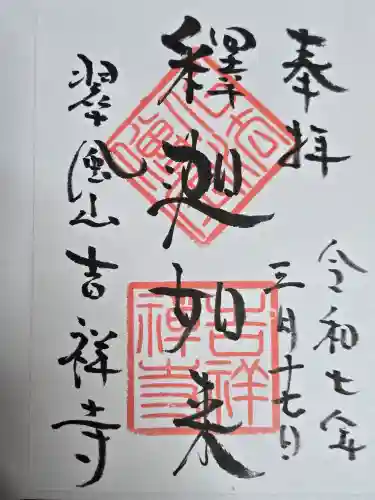 奉拝
令和七年
三月十七日
釋迦如来
翠風山
吉祥寺
吉祥禅寺